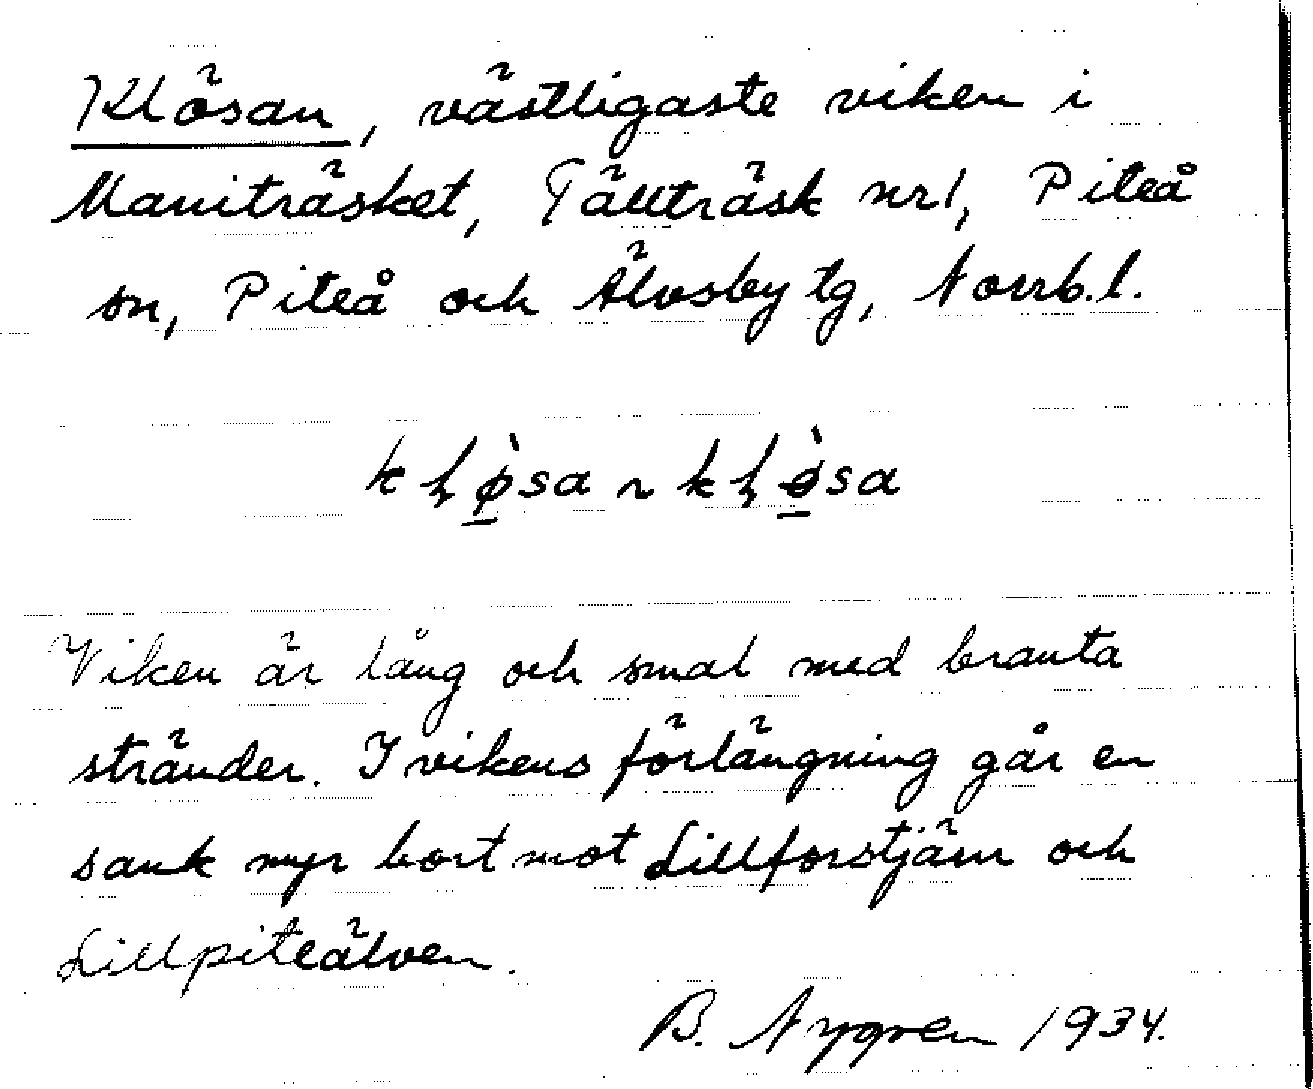 Klösan, västligaste viken i
Maniträsket, Tällträsk nr1, Piteå
sn, Piteå och Älvsby tg, Norrb.l.
kḷø̠̀sa ~ kḷɵ̠̀sa
Viken är lång och smal med branta
stränder. I vikens förlängning går en
sank myr bort mot Lillforstjärn och
Lillpiteälven.
B. Nygren 1934.